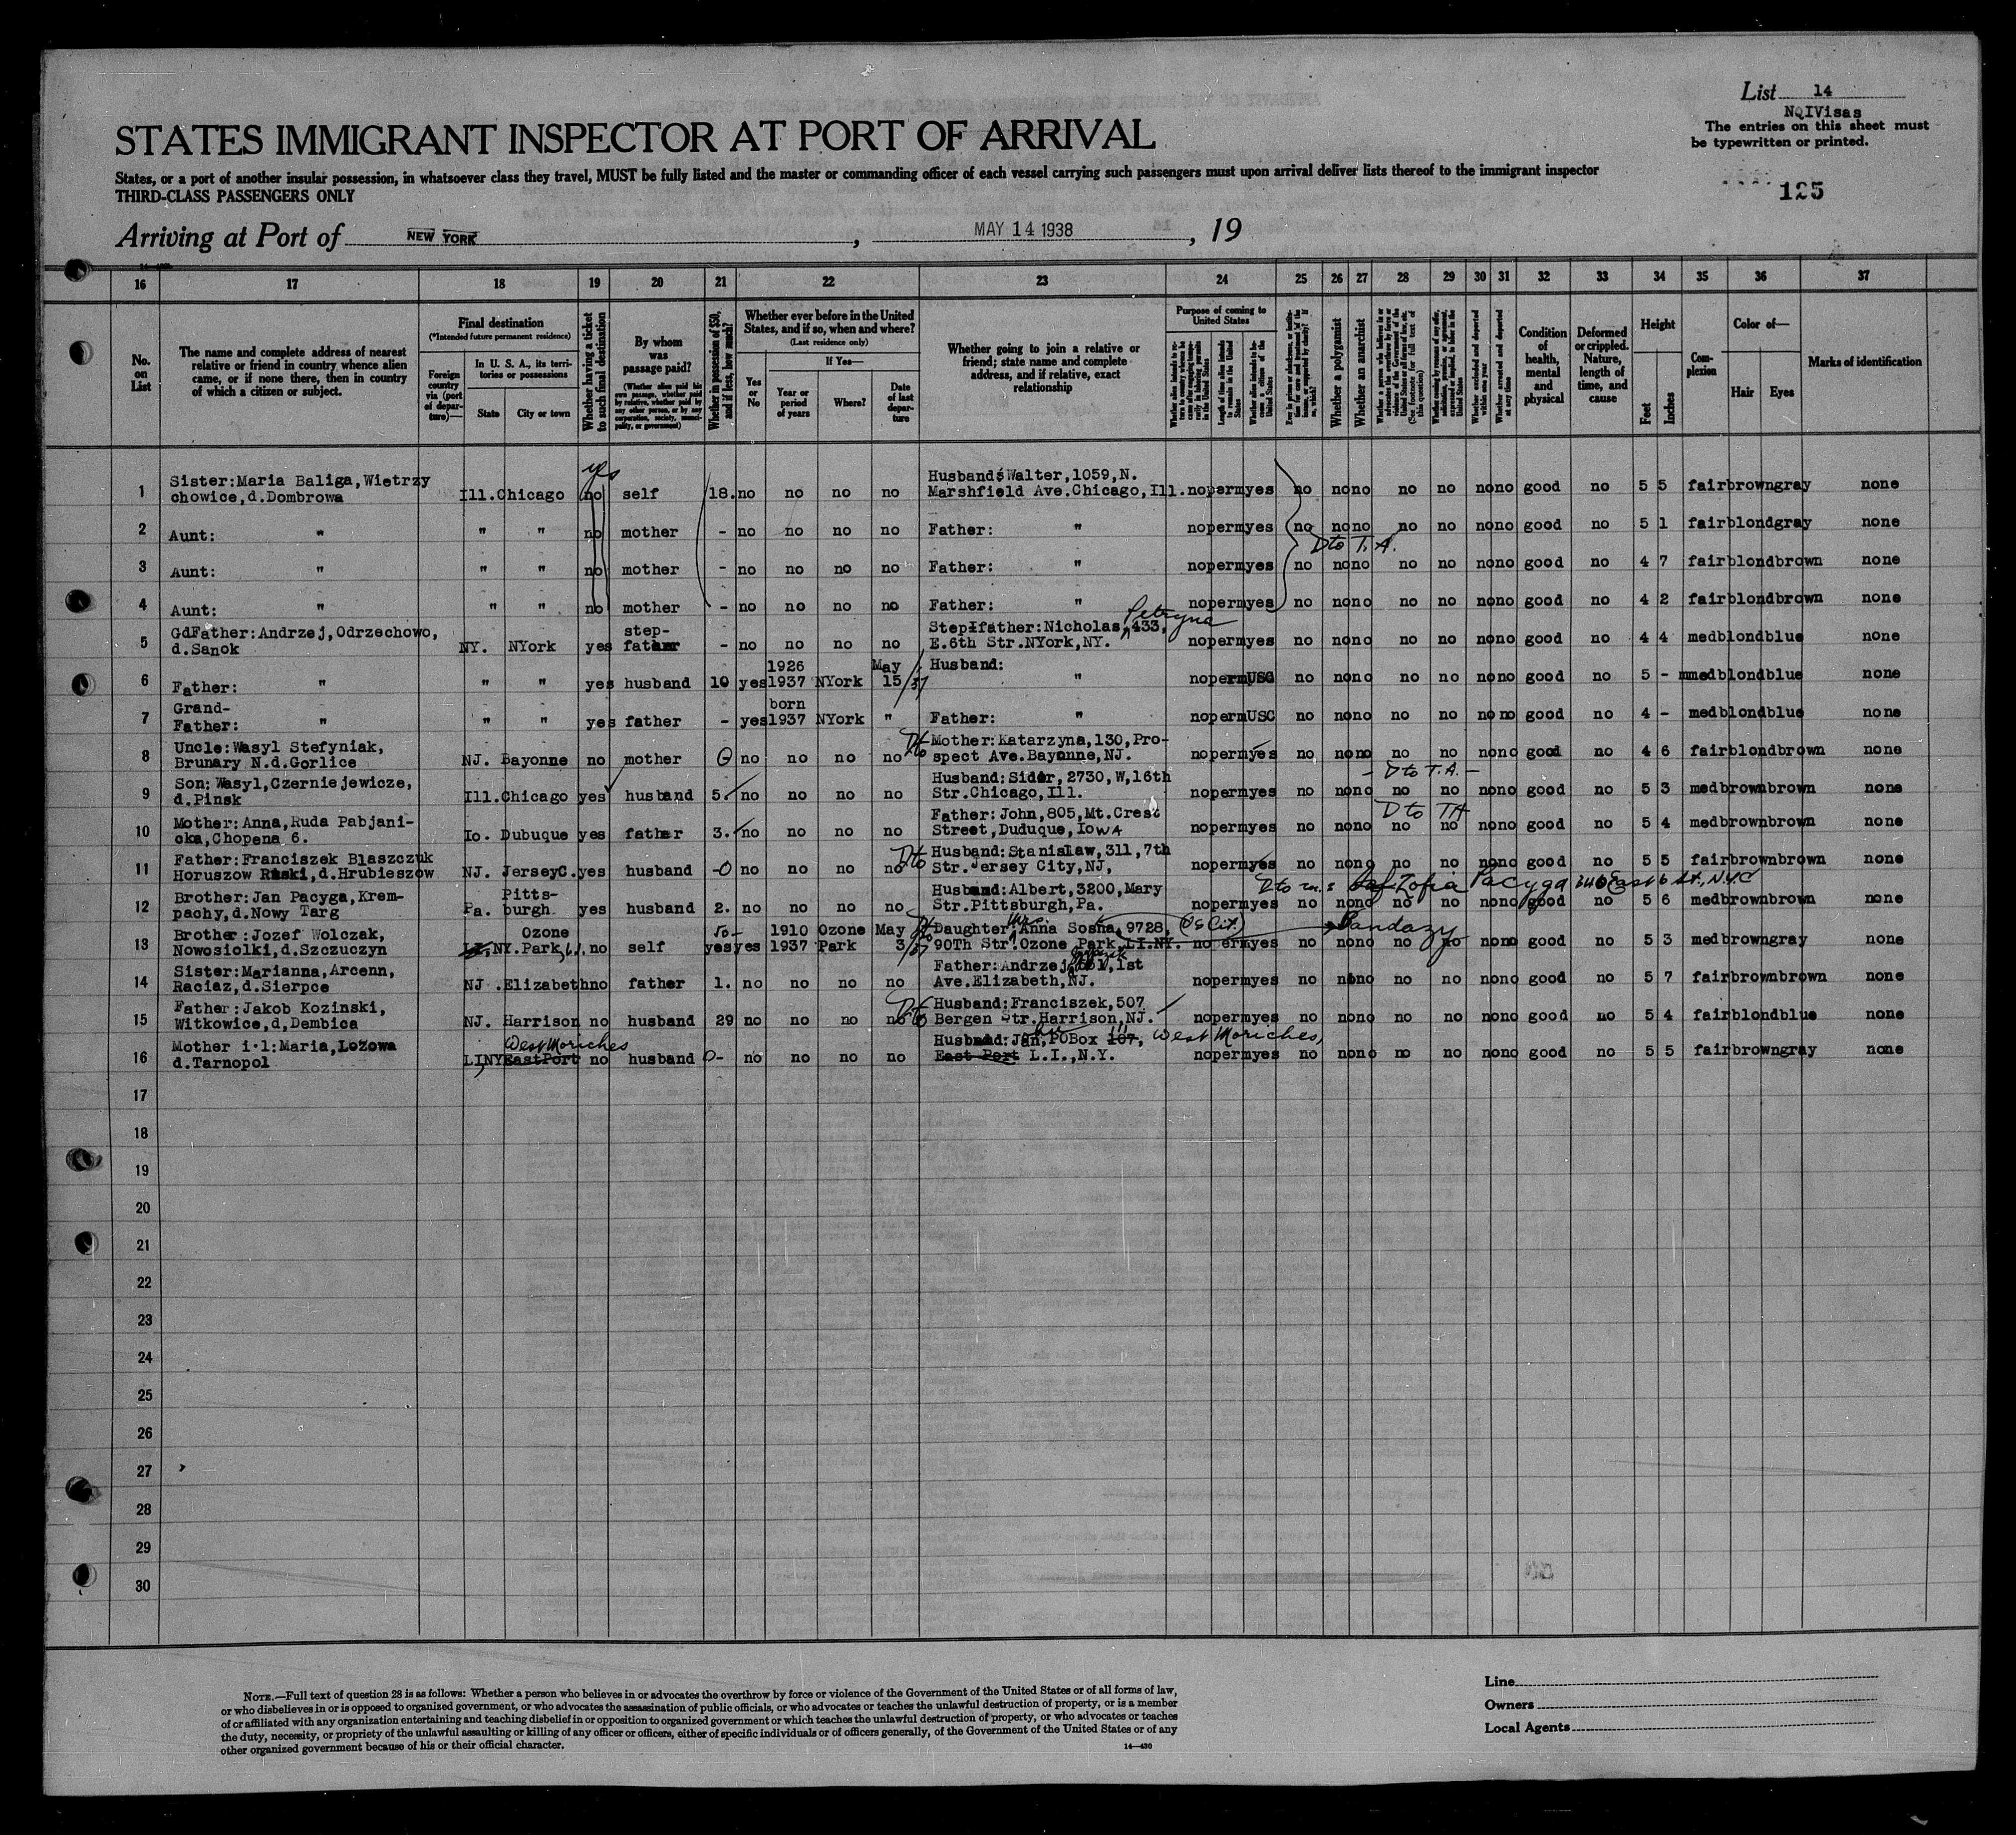 List 14
NQIVisas
The entries on this sheet must
be typewritten or printed.
STATES IMMIGRANT INSPECTOR AT PORT OF ARRIVAL
States, or a port of another insular possession, in whatsoever class they travel, MUST be fully listed and the master or commanding officer of each vessel carrying such passengers must upon arrival deliver lists thereof to the immigrant inspector
THIRD-CLASS PASSENGERS ONLY
125
Arriving at Port of NEW YORK, MAY 14 1938, 19
16 17 18 19 20 21 22 23 24 25 26 27 28 29 30 31 32 33 34 35 36 37
No. on List
The name and complete address of nearest relative or friend in country whence alien came, or if none there, then in country of which a citizen or subject.
Final destination
(*Intended future permanent residence)
Foreign country via (port of departure)—
In U. S. A., its territories or possessions
State City or town
Whether having a ticket to such final destination
By whom was passage paid?
(Whether alien paid his own passage, whether paid by relative, whether paid by any other person, or by any corporation, society, municipality, or government)
Whether in possession of $50, and if less, how much?
Whether ever before in the United States, and if so, when and where?
(Last residence only)
Yes or No
If Yes—
Year or period of years Where? Date of last departure
Whether going to join a relative or friend; state name and complete address, and if relative, exact relationship
Purpose of coming to United States
Length of time alien intends to remain in the United States
Whether alien intends to become a citizen of the United States
Whether a polygamist
Whether an anarchist
(See footnote for full text of this question)
Whether excluded and deported within one year
Whether arrested and deported at any time
Condition of health, mental and physical
Deformed or crippled. Nature, length of time, and cause
Height
Feet Inches
Complexion
Color of—
Hair Eyes
Marks of identification
yes
1 Sister:Maria Baliga,Wietrzy chowice,d.Dombrowa Ill.Chicago no self 18. no no no no Husband:Walter,1059,N. Marshfield Ave.Chicago,Ill. no perm yes no no no no no no no good no 5 5 fair brown gray none
2 Aunt: " " " no mother - no no no no Father: " no perm yes no no no no no no no good no 5 1 fair blond gray none
D to T.A.
3 Aunt: " " " no mother - no no no no Father: " no perm yes no no no no no no no good no 4 7 fair blond brown none
4 Aunt: " " " no mother - no no no no Father: " no perm yes no no no no no no no good no 4 2 fair blond brown none
Petryna
5 GdFather:Andrzej,Odrzechowo, d.Sanok NY. NYork yes step-father - no no no no Stepfather:Nicholas,433, E.6th Str.NYork,NY. no perm yes no no no no no no no good no 4 4 med blond blue none
6 Father: " " " yes husband 10 yes 1926 1937 NYork May 15/37 Husband: " no perm USC no no no no no no no good no 5 - med blond blue none
7 Grand-Father: " " " yes father - yes born 1937 NYork " Father: " no perm USC no no no no no no no good no 4 - med blond blue none
8 Uncle:Wasyl Stefyniak, Brunary N.d.Gorlice NJ. Bayonne no mother 0 no no no no Mother:Katarzyna,130,Pro-spect Ave.Bayonne,NJ. no perm yes no no no no no no no good no 4 6 fair blond brown none
- D to T.A. -
9 Son:Wasyl,Czerniejewicze, d.Pinsk Ill.Chicago yes husband 5. no no no no Husband:Sidor,2730,W,16th Str.Chicago,Ill. no perm yes no no no no no no no good no 5 3 med brown brown none
D to TA
10 Mother:Anna,Ruda Pabjani-cka,Chopena 6. Io. Dubuque yes father 3. no no no no Father:John,805,Mt.Crest Street,Duduque,Iowa no perm yes no no no no no no no good no 5 4 med brown brown none
11 Father:Franciszek Blaszczuk Horuszow Ruski,d.Hrubieszow NJ. JerseyC. yes husband -0 no no no no Husband:Stanislaw,311,7th Str.Jersey City,NJ, no perm yes no no no no no no no good no 5 5 fair brown brown none
Zofia Pacyga 346 East 6 St., N.Y.C
12 Brother:Jan Pacyga,Krem-pachy,d.Nowy Targ Pa. Pitts-burgh yes husband 2. no no no no Husband:Albert,3200,Mary Str.Pittsburgh,Pa. no perm yes no no no no no no no good no 5 6 med brown brown none
Bandazy
13 Brother:Jozef Wolczak, Nowosiolki,d.Szczuczyn NY. Ozone Park, L.I. no self 50- yes yes 1910 1937 Ozone Park May 3/37 Daughter:Mrs Anna Sosna,9728, (US Cit.) 90Th Str.Ozone Park,LI.NY. no perm yes no no no no no no no good no 5 3 med brown gray none
14 Sister:Marianna,Arcenn, Raciaz,d.Sierpce NJ. Elizabeth no father 1. no no no no Father:Andrzej, 1st Ave.Elizabeth,NJ. no perm yes no no no no no no no good no 5 7 fair brown brown none
15 Father:Jakob Kozinski, Witkowice,d,Dembica NJ. Harrison no husband 29 no no no no Husband:Franciszek,507 Bergen Str.Harrison,NJ. no perm yes no no no no no no no good no 5 4 fair blond blue none
West Moriches
16 Mother i.l:Maria,Lozowa d.Tarnopol LINY East Port no husband 0- no no no no Husband:Jan,POBox 107, West Moriches, East Port L.I.,N.Y. no perm yes no no no no no no no good no 5 5 fair brown gray none
17
18
19
20
21
22
23
24
25
26
27
28
29
30
NOTE.—Full text of question 28 is as follows: Whether a person who believes in or advocates the overthrow by force or violence of the Government of the United States or of all forms of law,
or who disbelieves in or is opposed to organized government, or who advocates the assassination of public officials, or who advocates or teaches the unlawful destruction of property, or is a member
of or affiliated with any organization entertaining and teaching disbelief in or opposition to organized government or which teaches the unlawful destruction of property, or who advocates or teaches
the duty, necessity, or propriety of the unlawful assaulting or killing of any officer or officers, either of specific individuals or of officers generally, of the Government of the United States or of any
other organized government because of his or their official character.
14—430
Line
Owners
Local Agents